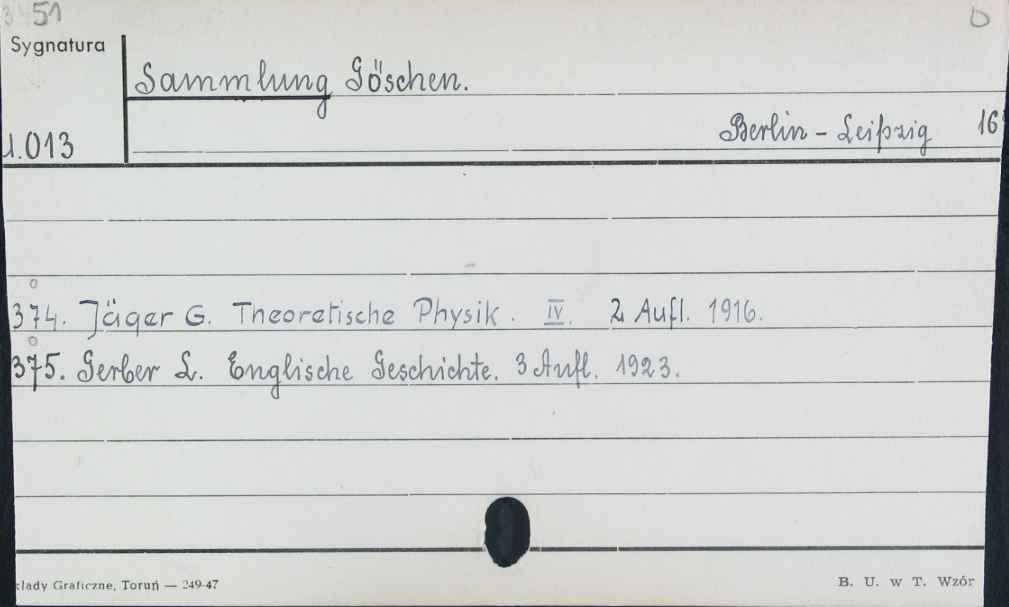 3451 D
Sygnatura
Sammlung Göschen.
Berlin - Leipzig 16
1.013
374. Jäger G. Theoretische Physik. IV. 2 Aufl. 1916.
375. Gerber L. Englische Geschichte. 3 Aufl. 1923.
kłady Graficzne, Toruń — 249-47
B. U. w T. Wzór